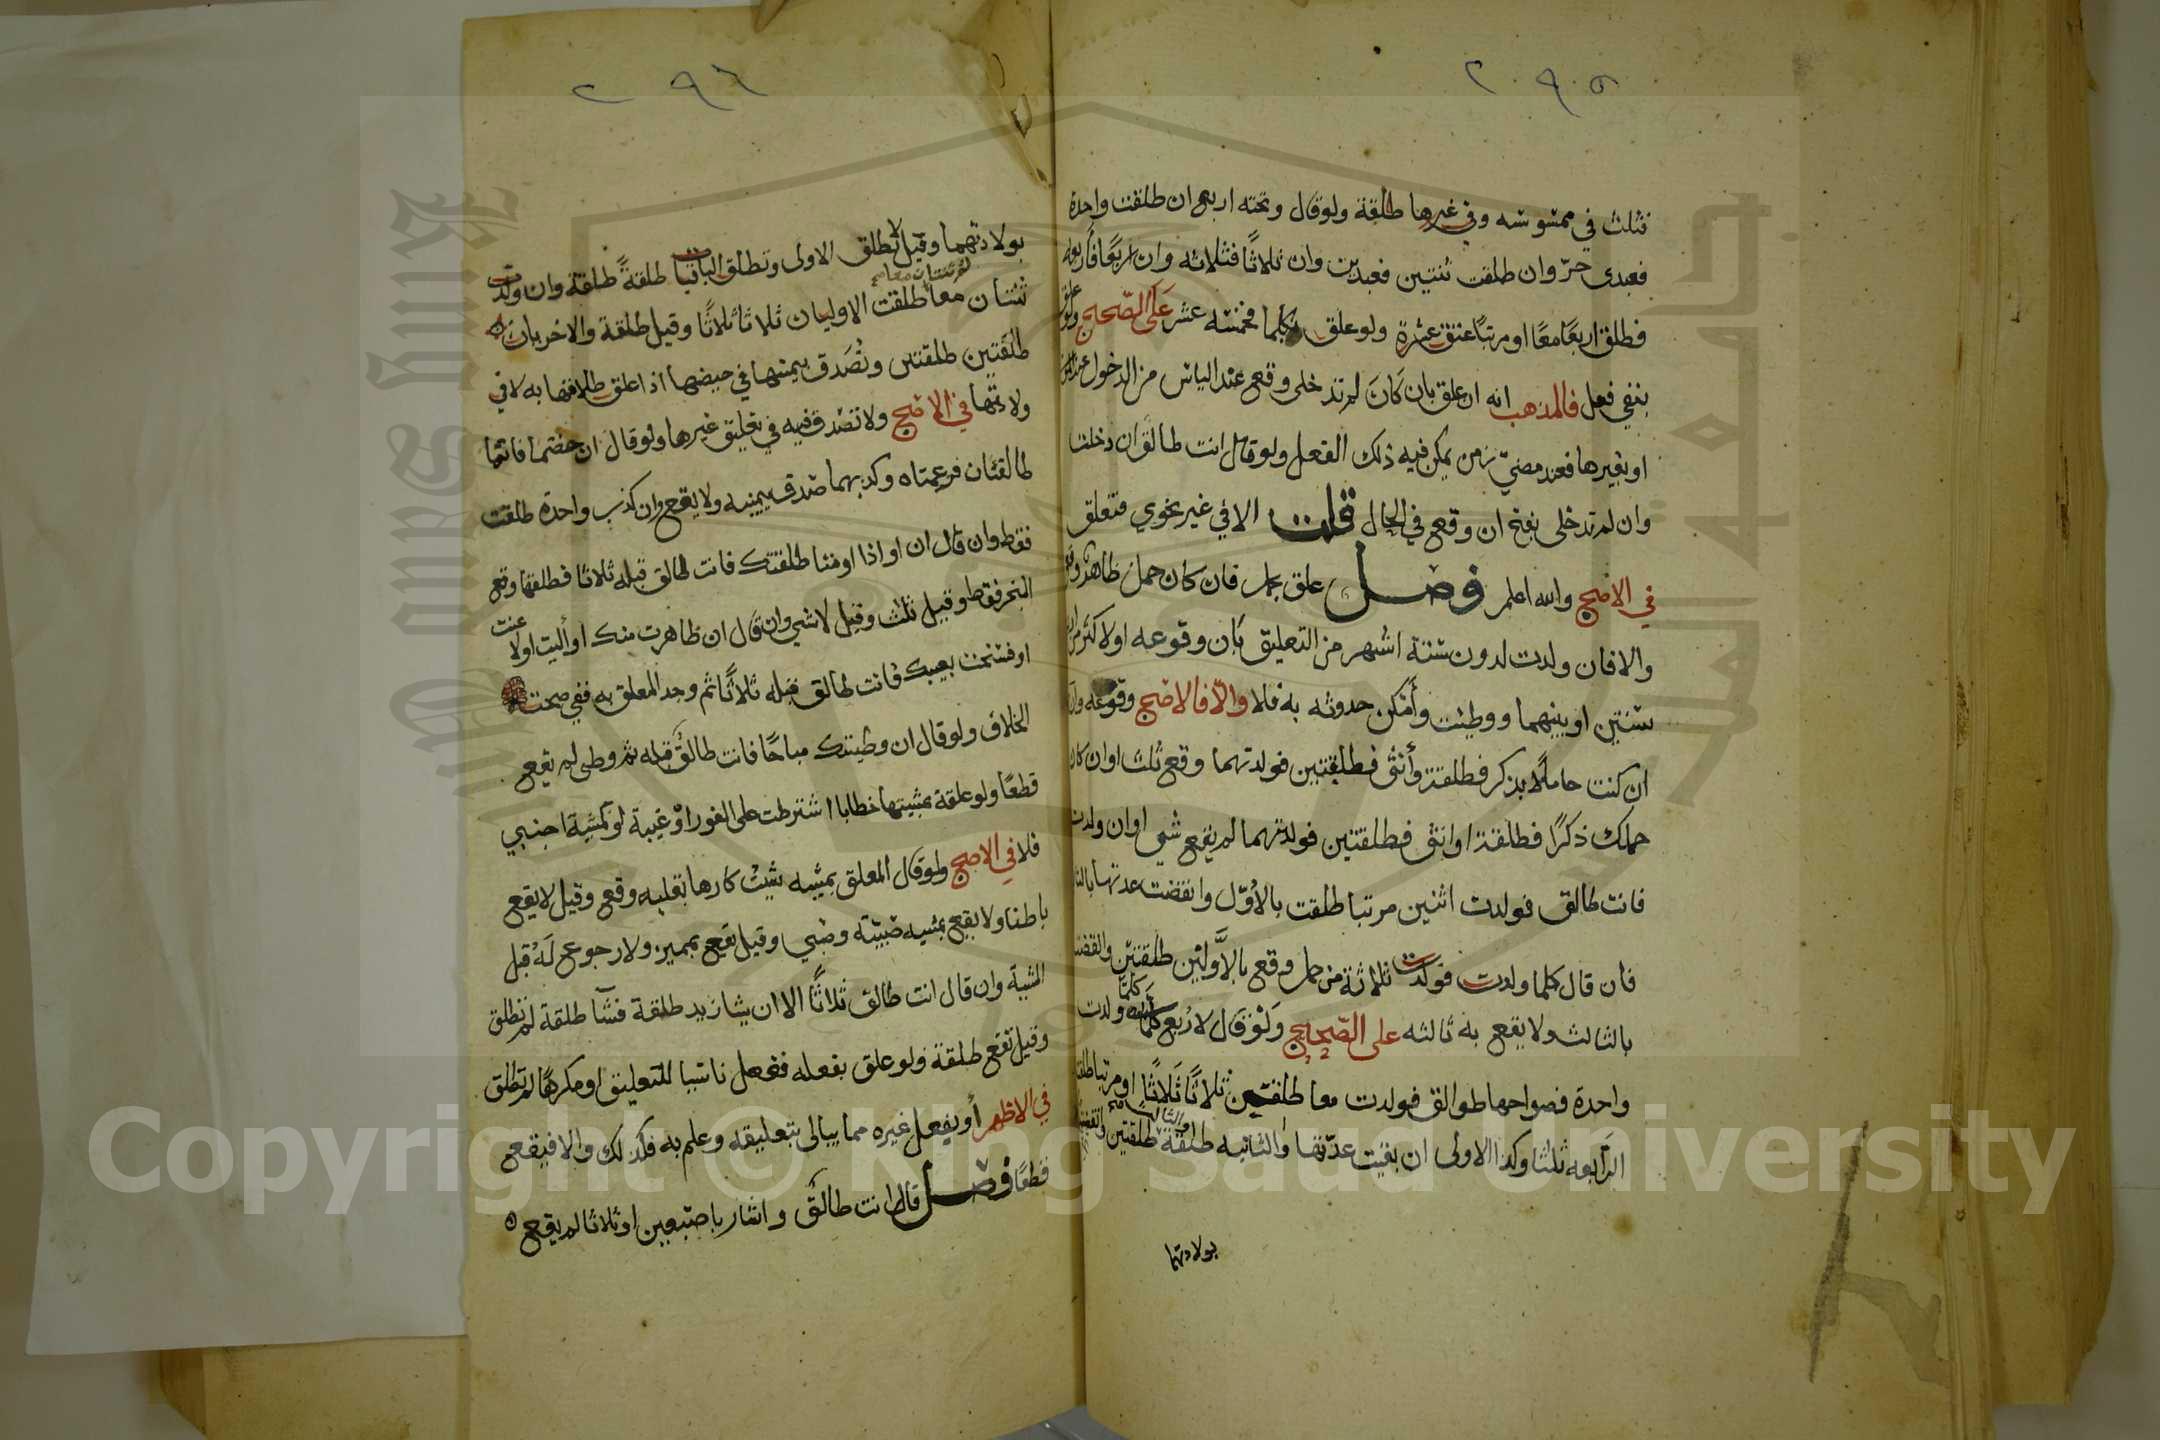 ٢٩٥
فثلث في ممسوسه وفي غيرها طلقة ولو قال وتحته اربع ان طلقت واحدة
فعبدى حرّ وان طلقت ثنتين فعبدين وان ثلاثًا فثلاثه وان اربعًا فأربعه
فطلق اربعًا معًا او مرتبًا عتق عشرة ولو علق بكلما فخمسه عشر على الصّحيح ولو علق
بنفي فعل فالمذهب انه ان علق بان كان لم تدخلى وقع عند الياس من الدخول
او بغيرها فعند مضيّ زمن يمكن فيه ذلك الفعل ولو قال انت طالق ان دخلت
وان لم تدخلى بفتح ان وقع في الحال قلت الا في غير نحوي فتعلق
في الاصح والله اعلم فصل علق بحمل فان كان حمل ظاهر وقع
والا فان ولدت لدون ستة اشهر من التعليق بان وقوعه او لاكثر من اربع
سنين او بينهما ووطيئت وأمكن حدوثه به فلا والّا فالاصح وقوعه وان
ان كنت حاملًا بذكر فطلقة وأنثى فطلقتين فولدتهما وقع ثلث او ان كان
حملك ذكرًا فطلقة او انثى فطلقتين فولدتهما لم يقع شي او ان ولدت
فانت طالق فولدت اثنين مرتبا طلقت بالأوّل وانقضت عدتها بالثا
فان قال كلما ولدت فولدت ثلاثة من حمل وقع بالأولين طلقتين وانقضت
بالثالث ولا يقع به ثالثه على الصّحيح ولو قال لأربع كلما ولدت
واحدة فصواحبها طوالق فولدت معا طلقن ثلاثًا ثلاثًا او مرتبا طلقت
الرّابعه ثلثا وكذا الاولى ان بقيت عدّتها والثانيه طلقة والثالثه طلقتين وانقضت
بولادتهما
٢٩٦
بولادتهما وقيل لا تطلق الاولى وتطلق الباقيات طلقةً طلقة وان ولدت
ثنتان معًا ثم ثنتان معا طلقت الاوليان ثلاثا ثلاثًا وقيل طلقة والاخريان
طلقتين طلقتين وتُصَدق بيمينها في حيضها اذا علق طلاقها به لا في
ولادتها في الاصح ولا تصدق فيه في تعليق غيرها ولو قال ان حضتما فانتما
طالقتان فزعمتاه وكذبهما صدق بيمينه ولا يقع وان كذب واحدة طلقت
فقط وان قال ان او اذا او متا طلقتك فانت طالق قبله ثلاثا فطلقها وقع
المنجز فقط وقيل ثلث وقيل لا شي وان قال ان ظاهرت منك او أليت او لاعنت
او فسخت بعيبك فانت طالق قبله ثلاثًا ثم وجد المعلق به ففي صحته
الخلاف ولو قال ان وطيتك مباحًا فانت طالق قبله ثم وطى لم يقع
قطعًا ولو علقه بمشيتها خطابا اشترطت على الفور او غيبة او بمشية اجنبي
فلا في الاصح ولو قال المعلق بمشيه شيت كارها بقلبه وقع وقيل لا يقع
باطنا ولا يقع بمشيه صبيّته وصبي وقيل يقع بمميز ولا رجوع لَهُ قبل
المشية وان قال انت طالق ثلاثًا الا ان يشا زيد طلقة فشآ طلقة لم تطلق
وقيل تقع طلقة ولو علق بفعله ففعل ناسيا للتعليق او مكرهًا لم تطلق
في الاظهر أو بفعل غيره مما يبالى بتعليقه وعلم به فكذلك والا فيقع
قطعًا فصل قال انت طالق واشار باصبعين او ثلاثا لم يقع